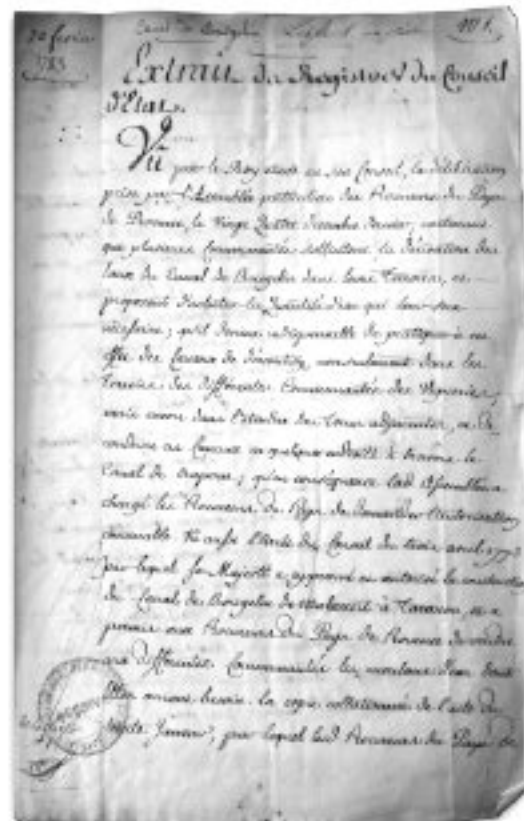 20 février
1783
Canal de Boisgelin
101.
Extrait des Registres du Conseil
d'Etat.
Vu par le Roy étant en son Conseil, la délibération
prise par l'Assemblée des Procureurs du Pays
de Provence, le Vingt Quatre décembre dernier, contenant
que plusieurs Communautés sollicitent la dérivation des
Eaux du Canal de Boisgelin dans leurs Terroirs, et
proposent d'acheter la quantité d'eau qui leur sera
nécessaire; qu'il devient indispensable de pratiquer à cet
effet des Canaux de dérivation, nonseulement dans les
Terroirs des differentes Communautés des Vigueries,
mais encore dans l'étendue des Terres adjacentes, et de
conduire ces Canaux en quelques endroits à travers le
Canal de Craponne; qu'en conséquence lad. Assemblée a
chargé les Procureurs du Pays de demander l'autorisation
convenable. Vu aussi l'Arrêt du Conseil du trois avril 177
par lequel Sa Majesté a approuvé et autorisé la construction
du Canal de Boisgelin de Mallemort à Tarascon, et a
permis aux Procureurs du Pays de Provence de vendre
aux differentes Communautés les moulans d'eau dont
Elles auront besoin. la copie collationnée de l'acte du
Janvier, par lequel les d. Procureurs du Pays de